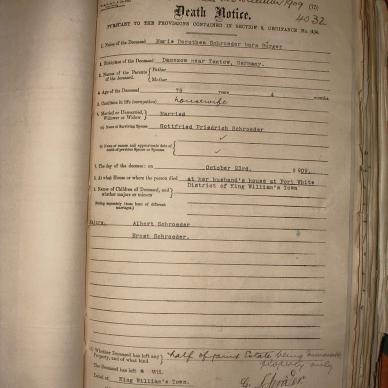 1909
4032
Death Notice.
PURSUANT TO THE PROVISIONS CONTAINED IN SECTION 9, ORDINANCE No. 104.
1. Name of the Deceased Maria Dorothea Schroeder born Burger
2. Birthplace of the Deceased near Tantow, Germany.
3. Names of the Parents of the deceased. Father
Mother
4. Age of the Deceased 75 years 4 months
5. Condition in life (occupation) housewife
6. Married or Unmarried, Widower or Widow Married
(a) Name of Surviving Spouse Gottfried Friedrich Schroeder
(b) Name or names and approximate date of death of previous Spouse or Spouses
7. The day of the decease: on October 23rd. 1909.
8. At what House or where the person died at her husband's house at Fort White
District of King William's Town
9. Names of Children of Deceased, and whether majors or minors
(Stating separately those born of different marriages.)
Majors. Albert Schroeder
Ernst Schroeder.
Whether Deceased has left any Property, and of what kind. half of joint Estate being
property only
The Deceased has left a Will.
Dated at King William's Town.